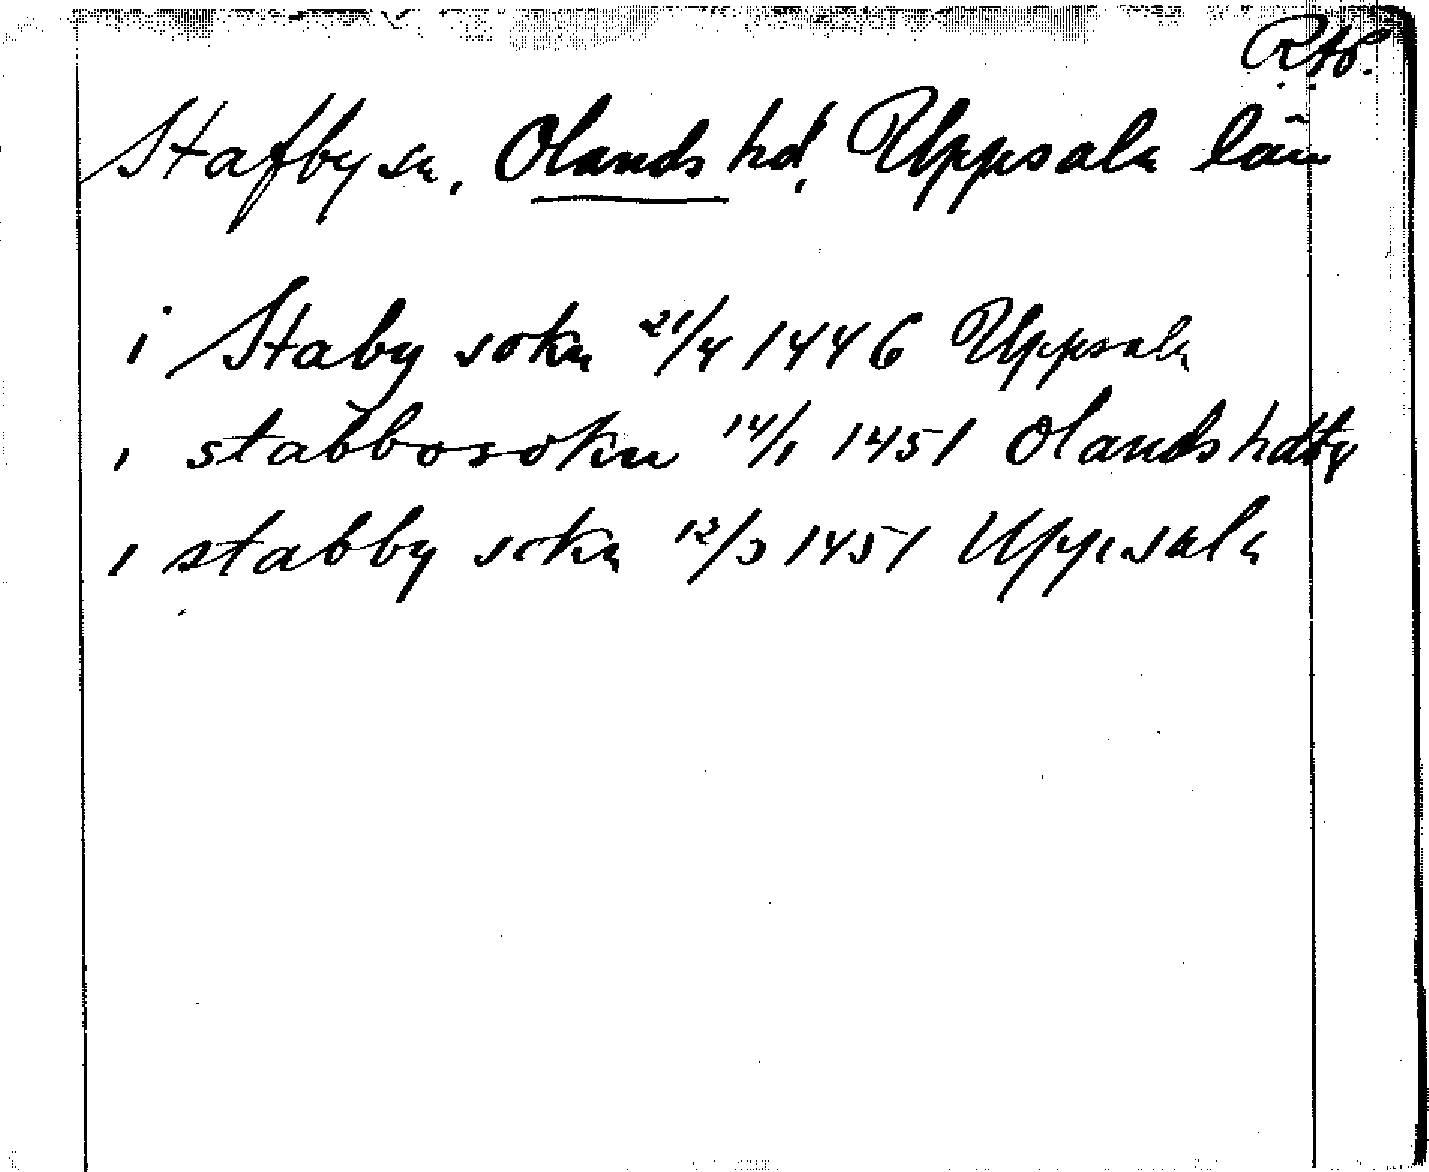 R.to.
Stafby sn, Olands hd, Uppsala län
i Staby sokn 21/4 1446 Uppsala
i stabbosokn 14/1 1451 Olandshdtg
i stabby sokn 12/3 1451 Uppsala